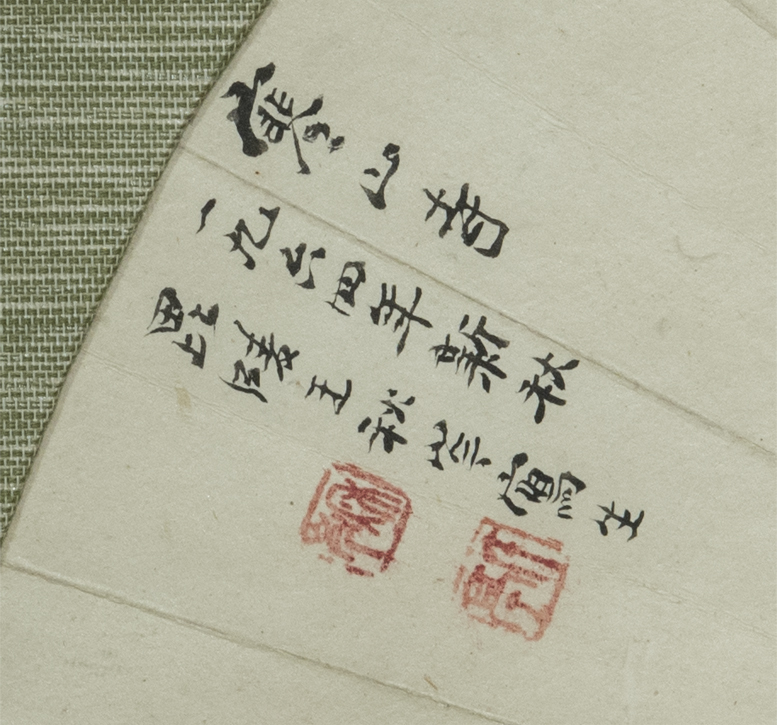 寒山寺
一九六四年新秋
毘陵王秋岑寫生